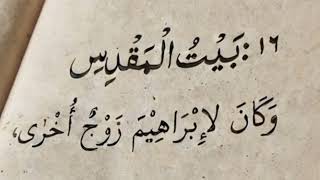 ١٦: بَيْتُ الْمَقْدِسِ
وَكَانَ لِإِبْرَاهِيْمَ زَوْجٌ أُخْرٰى،